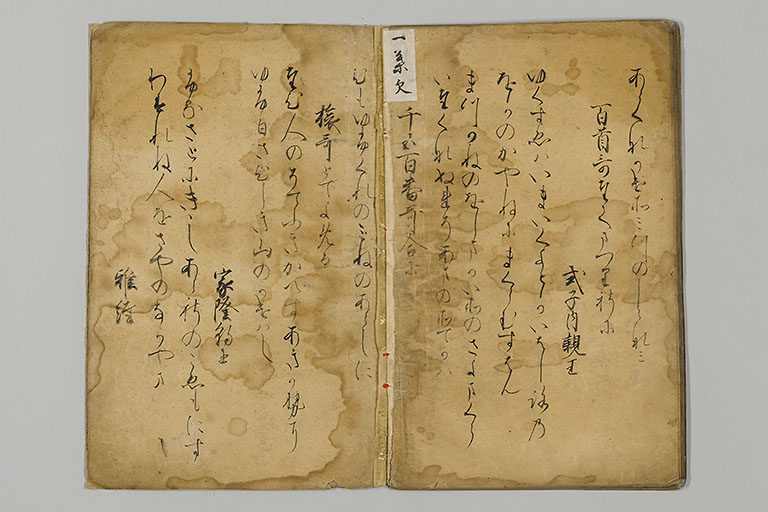 百首哥たてまつりし時に
式子内親王
ゆくすゑはいまいくよとかいはしろの
をかのかやねにまくらむすはん
まつかねのをしまかいそのさよまくら
いたくなぬれそあまのそてかは
千五百番哥合に
一葉欠
ひもゆふくれのみねのあらしに
旅哥とてよめる
たひ人のそてふきかへすあきかせに
ゆふ日さひしき山のかけはし
家隆朝臣
ふるさとにききしあらしのこゑもにす
わすれね人をさやのなかやま
雅経